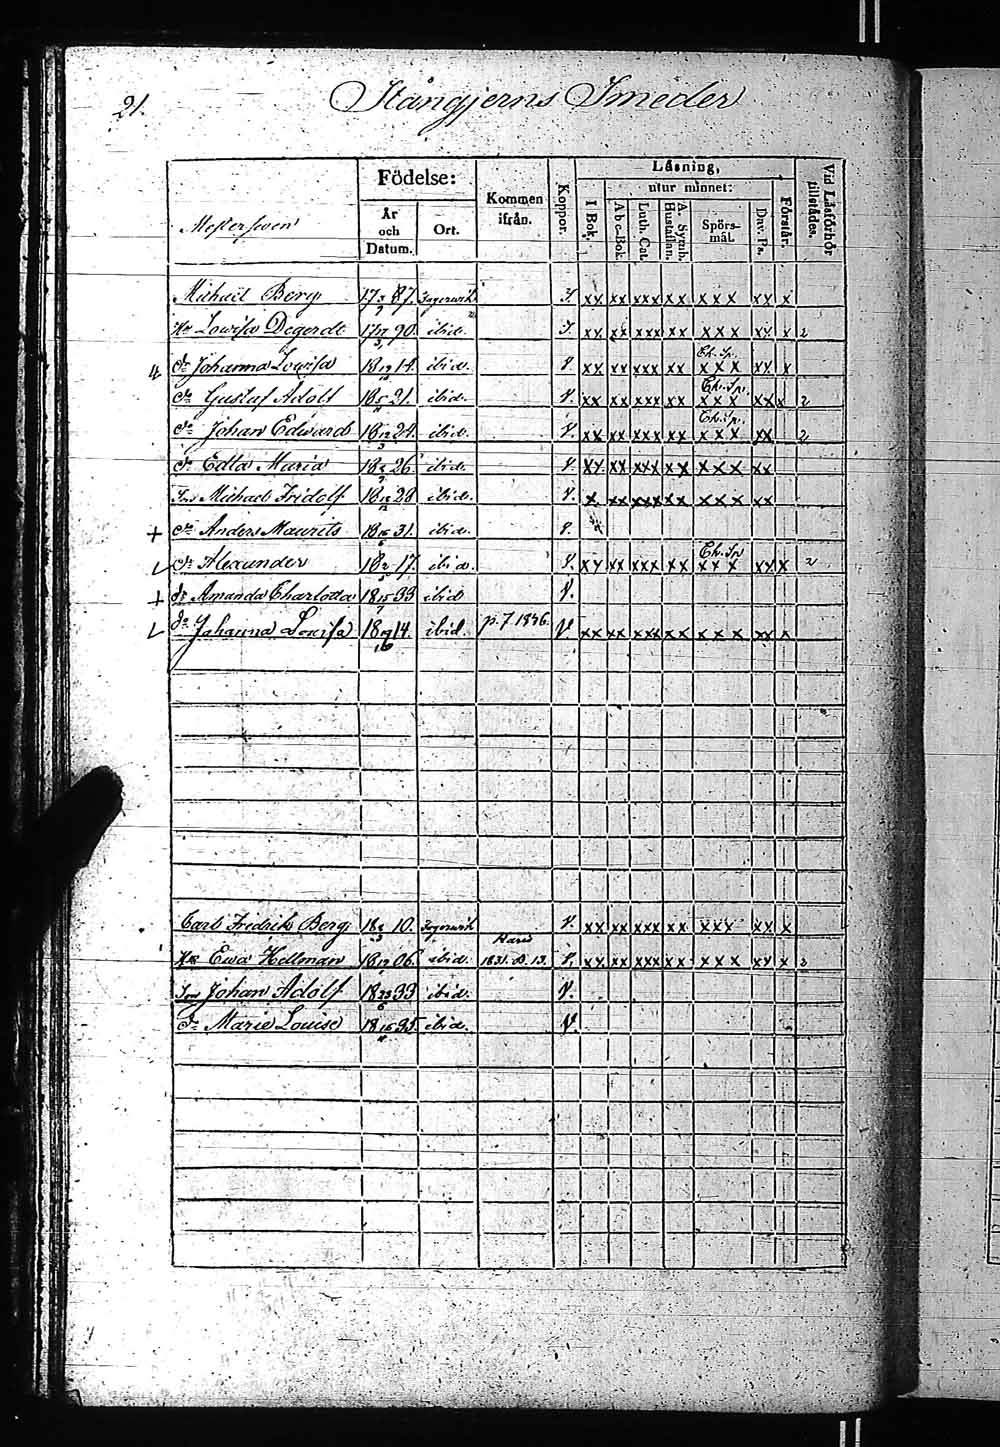 21.
Stångjerns Smeder
Födelse:
År och Datum.
Ort.
Kommen ifrån.
Koppor.
Läsning,
utur minnet:
I Bok.
A b c-Bok
Luth. Cat.
A. Symb. Hustaflan.
Spörsmål.
Dav. Ps.
Förstår.
Vid Läsförhör tillstädes.
Michaël Berg 87. S. xx xx xxx xx xxx xx x
Hu Lowisa Degerdt 90. ibid. S. xx xx xxx xx xxx xx x 2
Dr Johanna Lovisa 18 19/10 14. ibid. V. xx xx xxx xx Ch. Sp. xxx xx x
Gustaf Adolf 21. ibid. V. xx xx xxx xx Ch. Sp. xxx xx x 2
Johan Edward 18 12/3 24. ibid. V. xx xx xxx xx Ch. Sp. xxx xx 2
Dr Edla Maria 26 ibid. V. xx xx xxx xx xxx xx
Son Michael Fridolf 28 ibid. V. x xx xxx xx xxx xx
+ Anders Maurits 31. ibid. V.
Alexander 17. ibid. V. xx xx xxx xx Ch. Sp xxx xx x 2
+ Dr Amanda Charlotta 18 15/7 33 ibid V.
Johanna Lovisa 18 19/10 14. ibid. p. 7. 1836. V. xx xx xxx xx xxx xx x
Carl Fredrik Berg 10. V. xx xx xxx xx xxx xx x
Hu Ewa Hellman 06. ibid. 1831. 13. V. xx xx xxx xx xxx xx x 2
Son Johan Adolf 33 ibid. V.
Dr Marie Louise 35 ibid. V.